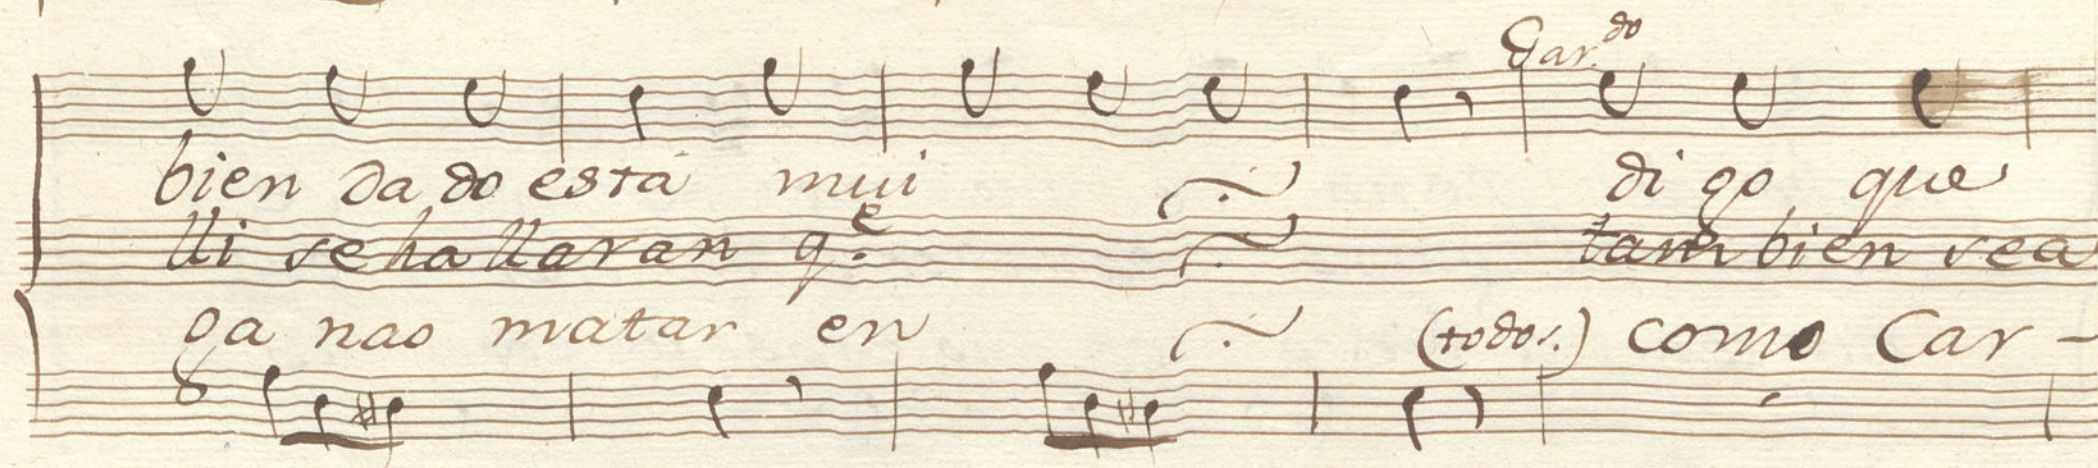 Gar.do
bien da do está mui di go que
lli se ha llaran q.e tam bien sea
ga nao matar en (todos.) como Car-